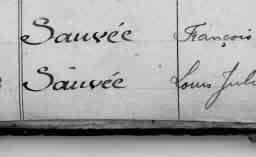 Sauvée François
Sauvée Louis Juli